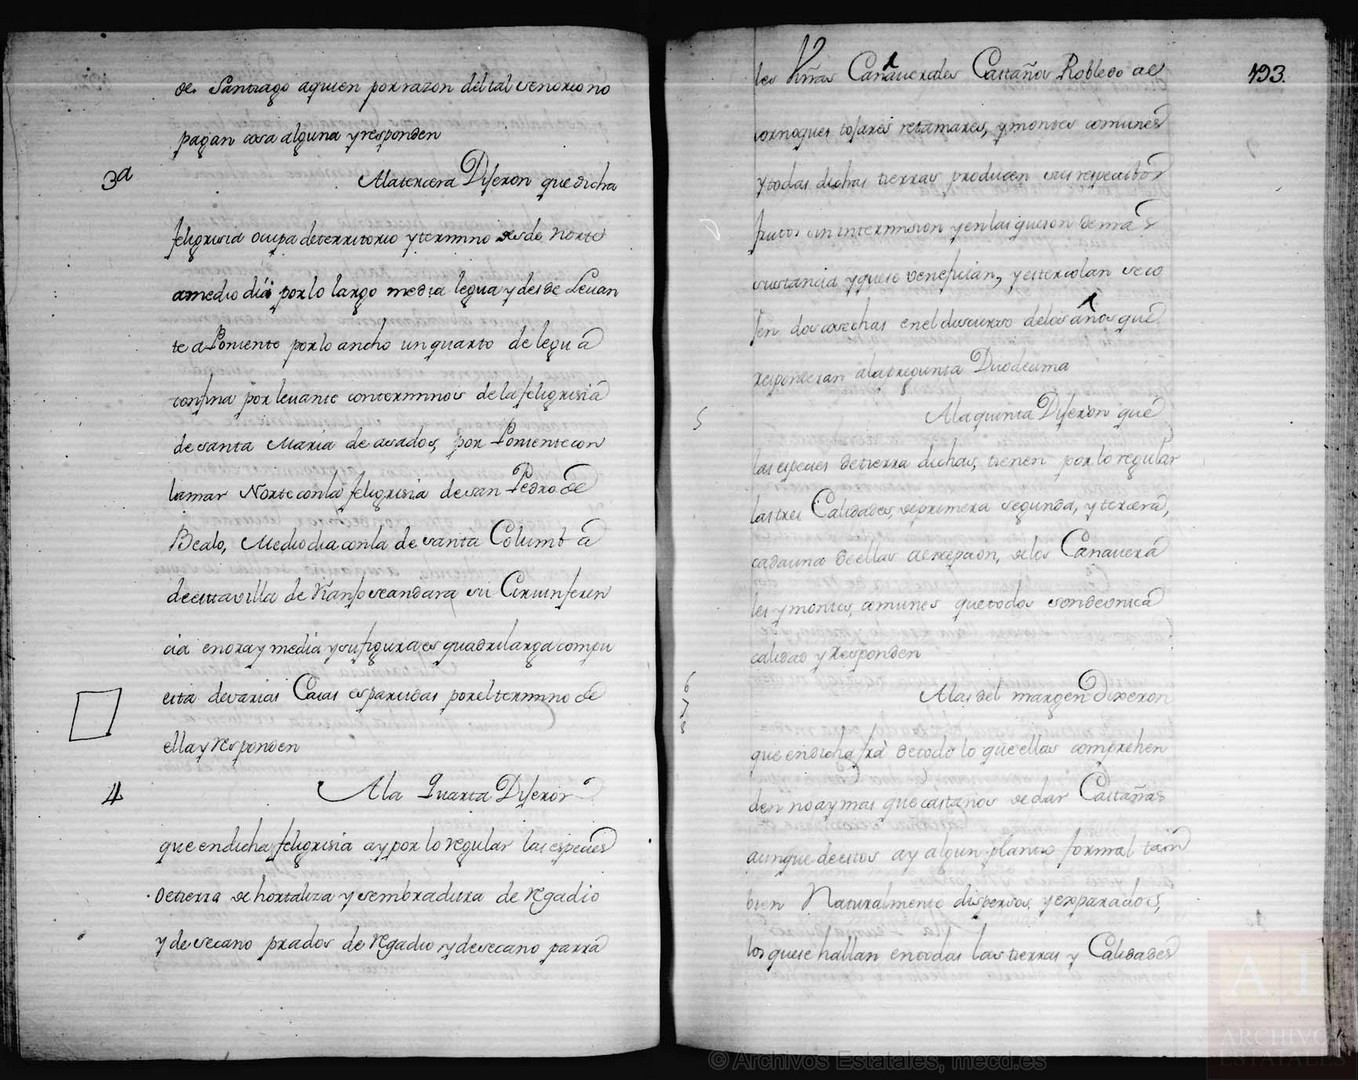 de Santiago aquien por razon del tal senorio no
pagan cosa alguna y responden
3a
Ala tercera Dijeron que dicha
feligrisia ocupa de territorio y termino desde Norte
amedio dia por lo largo media legua y desde Levan
te a Poniente por lo ancho un quarto de legua
confina por levante con terminos de la feligrisia
de santa Maria de asados, por Poniente con
la mar Norte con la feligrisia de san Pedro de
Bealo, Medio dia con la de santa Columba
de esta villa de Rianjo seandara su Circunferen
cia en ora y media y su figura es quadrilarga compu
esta de varias Casas esparcidas por el termino de
ella y responden
4
Ala Quarta Dijeron
que en dicha feligrisia ay por lo regular las especies
de tierra de hortaliza y sembradura de regadio
y de secano prados de regadio y de secano parra
193.
les Viñas Cañaverales Castaños Robledo de
cornoques tojares retamares, y montes comunes
y todas dichas tierras producen sus respectibos
frutos sin intermision y en las que son de mas
sustancia y que se venefician, y estercolan se co
jen dos cosechas en el discurso de los años que
responderan ala pregunta Duodecima
5
Ala quinta Dijeron que
las especies de tierra dichas, tienen por lo regular
las tres Calidades, de primera segunda, y tercera,
cada una de ellas aecepcion, de los Cañavera
les y montes, comunes que todos son de unica
calidad y responden
6 7 8
Alas del margen Dixeron
que en dicha fra de todo lo que ellas comprehen
den no ay mas que castaños de dar Castañas
aunque de estos ay algun plantio formal tam
bien Naturalmente dispersos, y esparcidos,
los que se hallan en todas las tierras y Calidades
© Archivos Estatales, mecd.es
AE
ARCHIVOS
ESTATALES